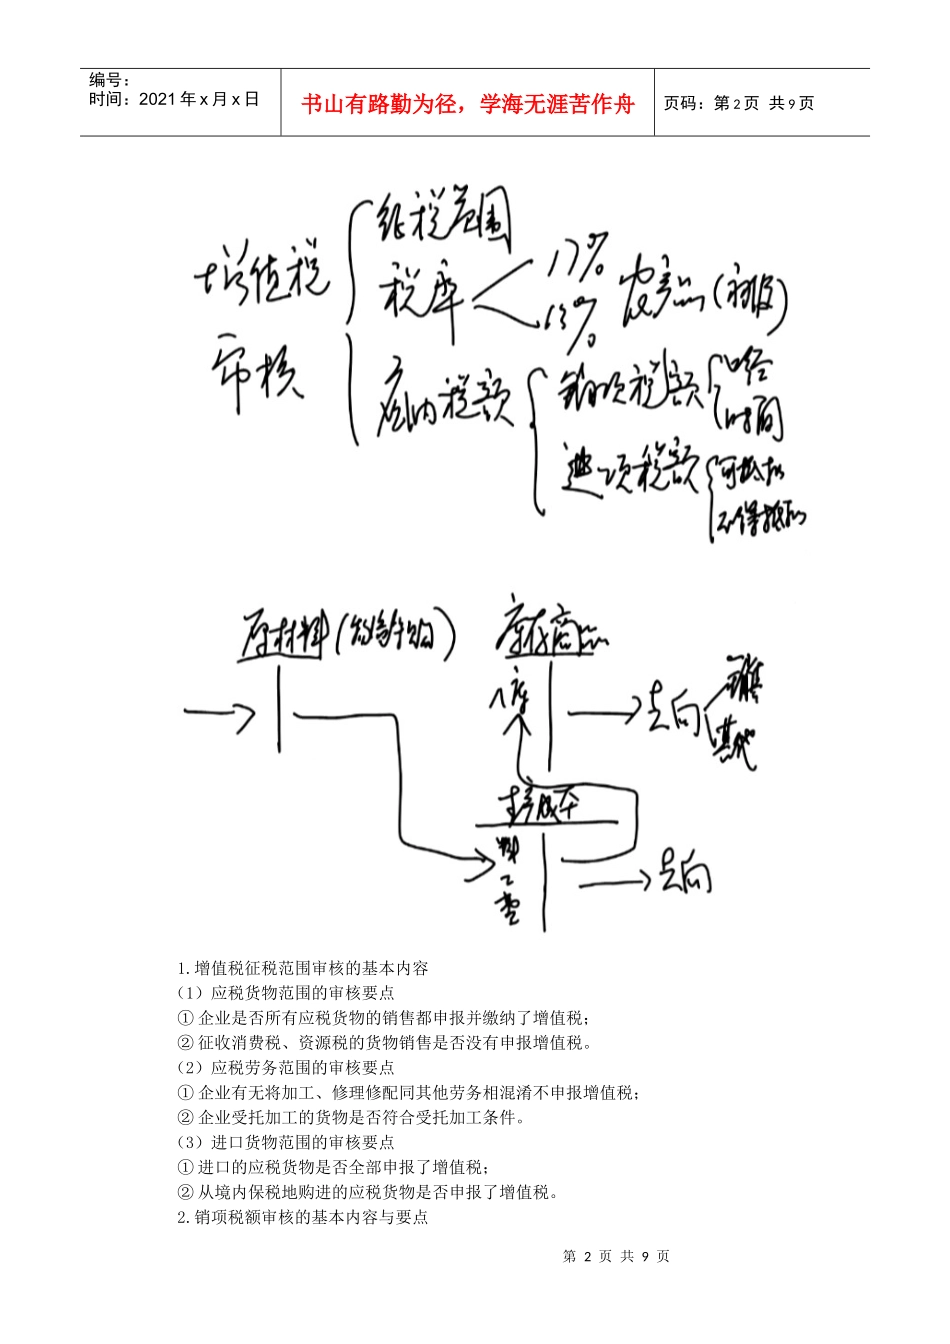 编号：
时间：2021年x月x日
书山有路勤为径，学海无涯苦作舟
页码：第2页 共9页
征税范围
增值税
审核
税率
17%
13%
农产品(初级)
应纳税额
销项税额
价格
时间
进项税额
可抵扣
不得抵扣
原材料
库存商品
入库
去向
销售
其他
生产成本
料
工
费
去向
1.增值税征税范围审核的基本内容
（1）应税货物范围的审核要点
① 企业是否所有应税货物的销售都申报并缴纳了增值税；
② 征收消费税、资源税的货物销售是否没有申报增值税。
（2）应税劳务范围的审核要点
① 企业有无将加工、修理修配同其他劳务相混淆不申报增值税；
② 企业受托加工的货物是否符合受托加工条件。
（3）进口货物范围的审核要点
① 进口的应税货物是否全部申报了增值税；
② 从境内保税地购进的应税货物是否申报了增值税。
2.销项税额审核的基本内容与要点
第 2 页 共 9 页